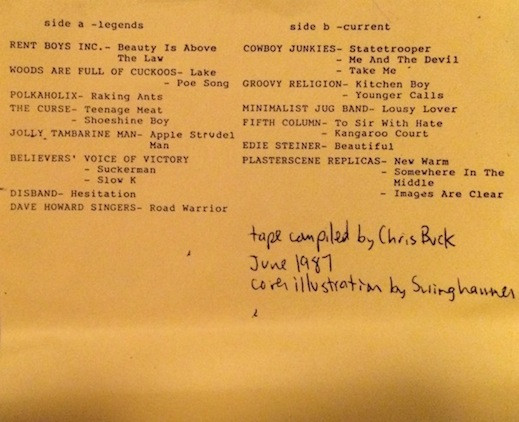 side a -legends
RENT BOYS INC.- Beauty Is Above
The Law
WOODS ARE FULL OF CUCKOOS- Lake
- Poe Song
POLKAHOLIX- Raking Ants
THE CURSE- Teenage Meat
- Shoeshine Boy
JOLLY TAMBARINE MAN- Apple Strudel
Man
BELIEVERS' VOICE OF VICTORY
- Suckerman
- Slow K
DISBAND- Hesitation
DAVE HOWARD SINGERS- Road Warrior
side b -current
COWBOY JUNKIES- Statetrooper
- Me And The Devil
- Take Me
GROOVY RELIGION- Kitchen Boy
- Younger Calls
MINIMALIST JUG BAND- Lousy Lover
FIFTH COLUMN- To Sir With Hate
- Kangaroo Court
EDIE STEINER- Beautiful
PLASTERSCENE REPLICAS- New Warm
- Somewhere In The
Middle
- Images Are Clear
tape compiled by Chris Buck
June 1987
cover illustration by Swinghammer